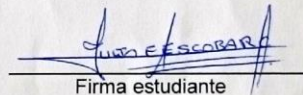 E ESCOBAR
Firma estudiante